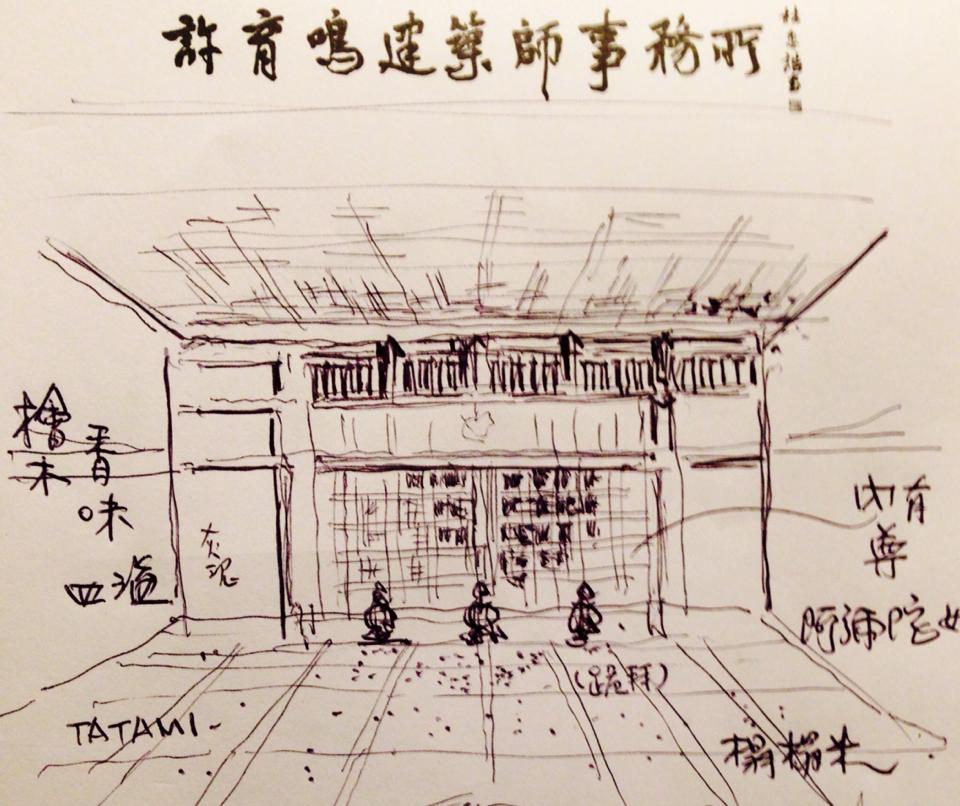 許育鳴建築師事務所
檜木
香
味
四溢
灰泥
內有
尊
阿彌陀
(跪拜)
TATAMI
榻榻米